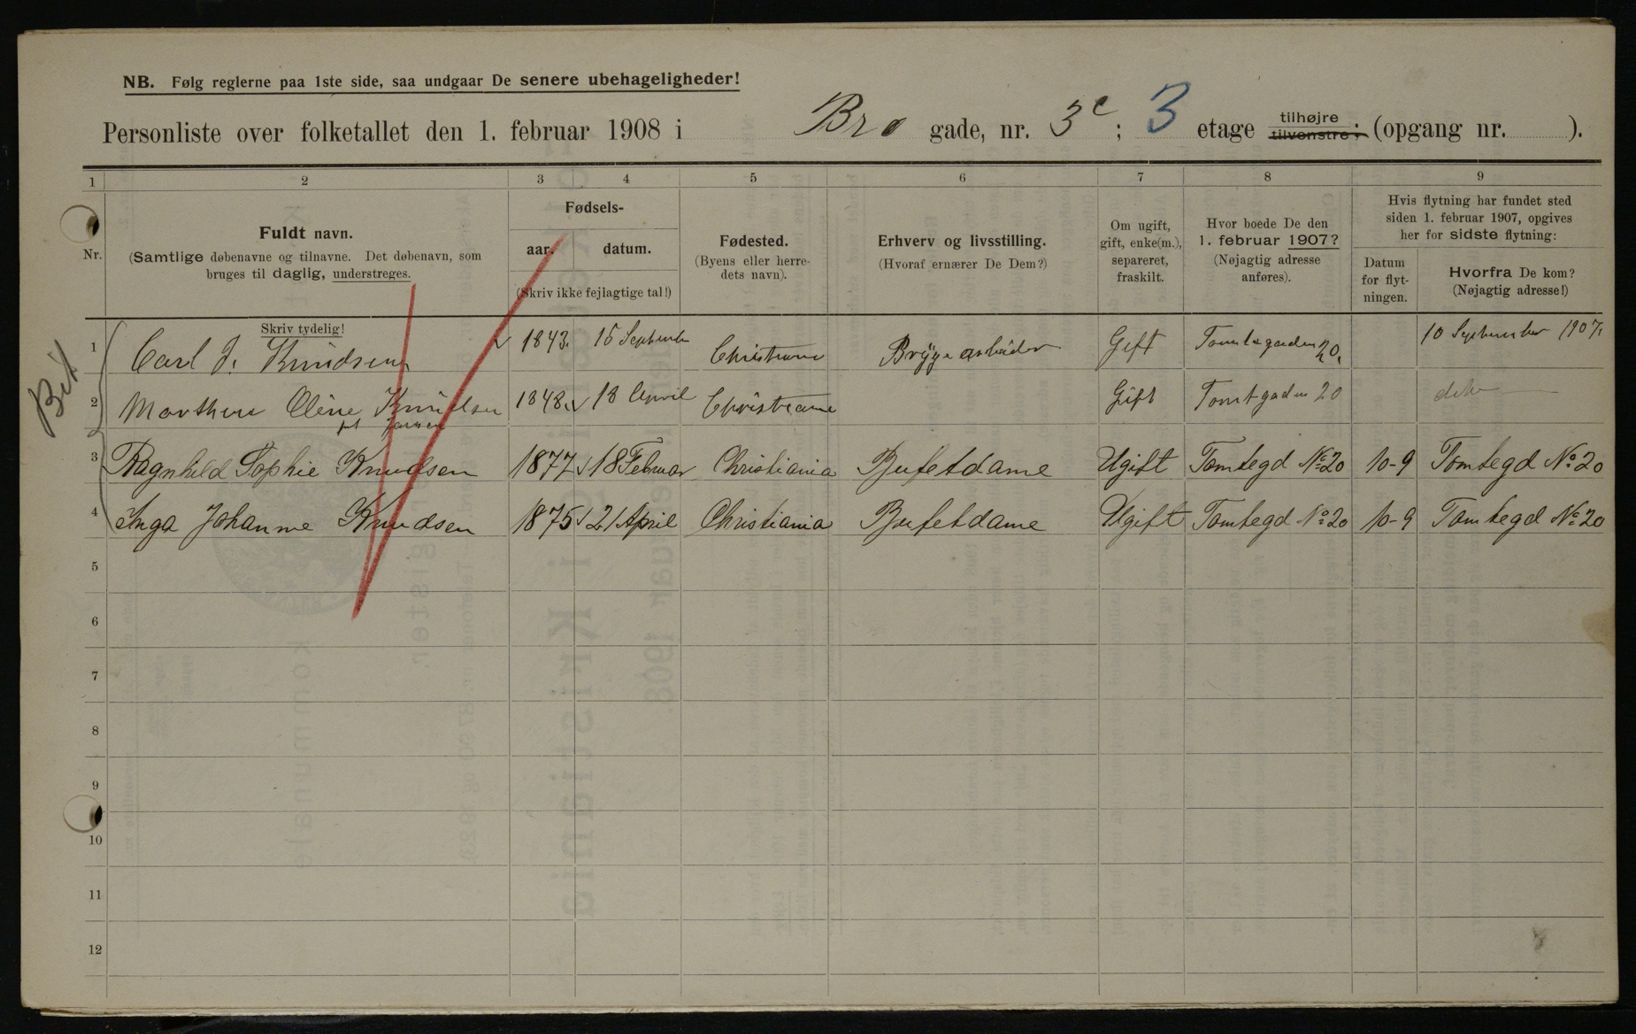 NB. Følg reglerne paa 1ste side, saa undgaar De senere ubehageligheder!
Personliste over folketallet den 1. februar 1908 i Bro gade, nr. 3c; 3 etage tilhøjre tilvenstre; (opgang nr. ).
1 2 3 4 5 6 7 8 9
Nr.
Fuldt navn.
(Samtlige døbenavne og tilnavne. Det døbenavn, som bruges til daglig, understreges.
Skriv tydelig!
Fødsels-
aar. datum.
(Skriv ikke fejlagtige tal!)
Fødested.
(Byens eller herredets navn).
Erhverv og livsstilling.
(Hvoraf ernærer De Dem?)
Om ugift, gift, enke(m.), separeret, fraskilt.
Hvor boede De den 1. februar 1907?
(Nøjagtig adresse anføres).
Hvis flytning har fundet sted siden 1. februar 1907, opgives her for sidste flytning:
Datum for flytningen.
Hvorfra De kom?
(Nøjagtig adresse!)
1 Carl J. Knudsen 1843. 15 September Christiania Bryggearbeider Gift Tomtegaden 20. 10 September 1907.
2 Marthine Oline Knudsen 1848. 18 April Christiania Gift Tomtgaden 20
3 Ragnhild Sophie Knudsen 1877 18 Februar Christiania Bufetdame Ugift Tomtegd No 20 10-9 Tomtegd No 20
4 Inga Johanne Knudsen 1875 21 April Christiania Bufetdame Ugift Tomtegd No 20 10-9 Tomtegd No 20
5
6
7
8
9
10
11
12